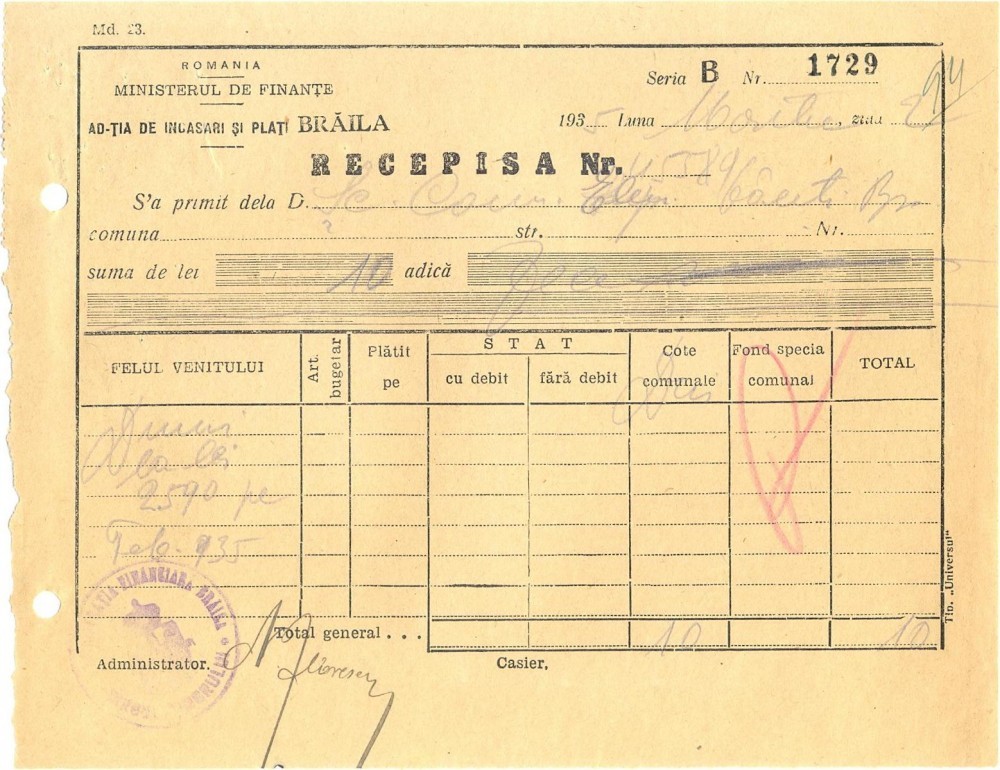 Md. 23.
ROMANIA
MINISTERUL DE FINANȚE
AD-ȚIA DE INCASARI ȘI PLATI BRĂILA
Seria B Nr. 1729
94
1935 Luna Martie, ziua 2
RECEPISA Nr.
S'a primit dela D. Sc. Com.
comuna str. Nr.
suma de lei 10 adică Zece
FELUL VENITULUI
Art. bugetar
Plătit pe
STAT
cu debit
fără debit
Cote comunale
Fond specia comunal
TOTAL
la lei
2590 pe
Feb. 935
Total general . . . 10 10
Administrator.
Casier,
Tip. „Universul"